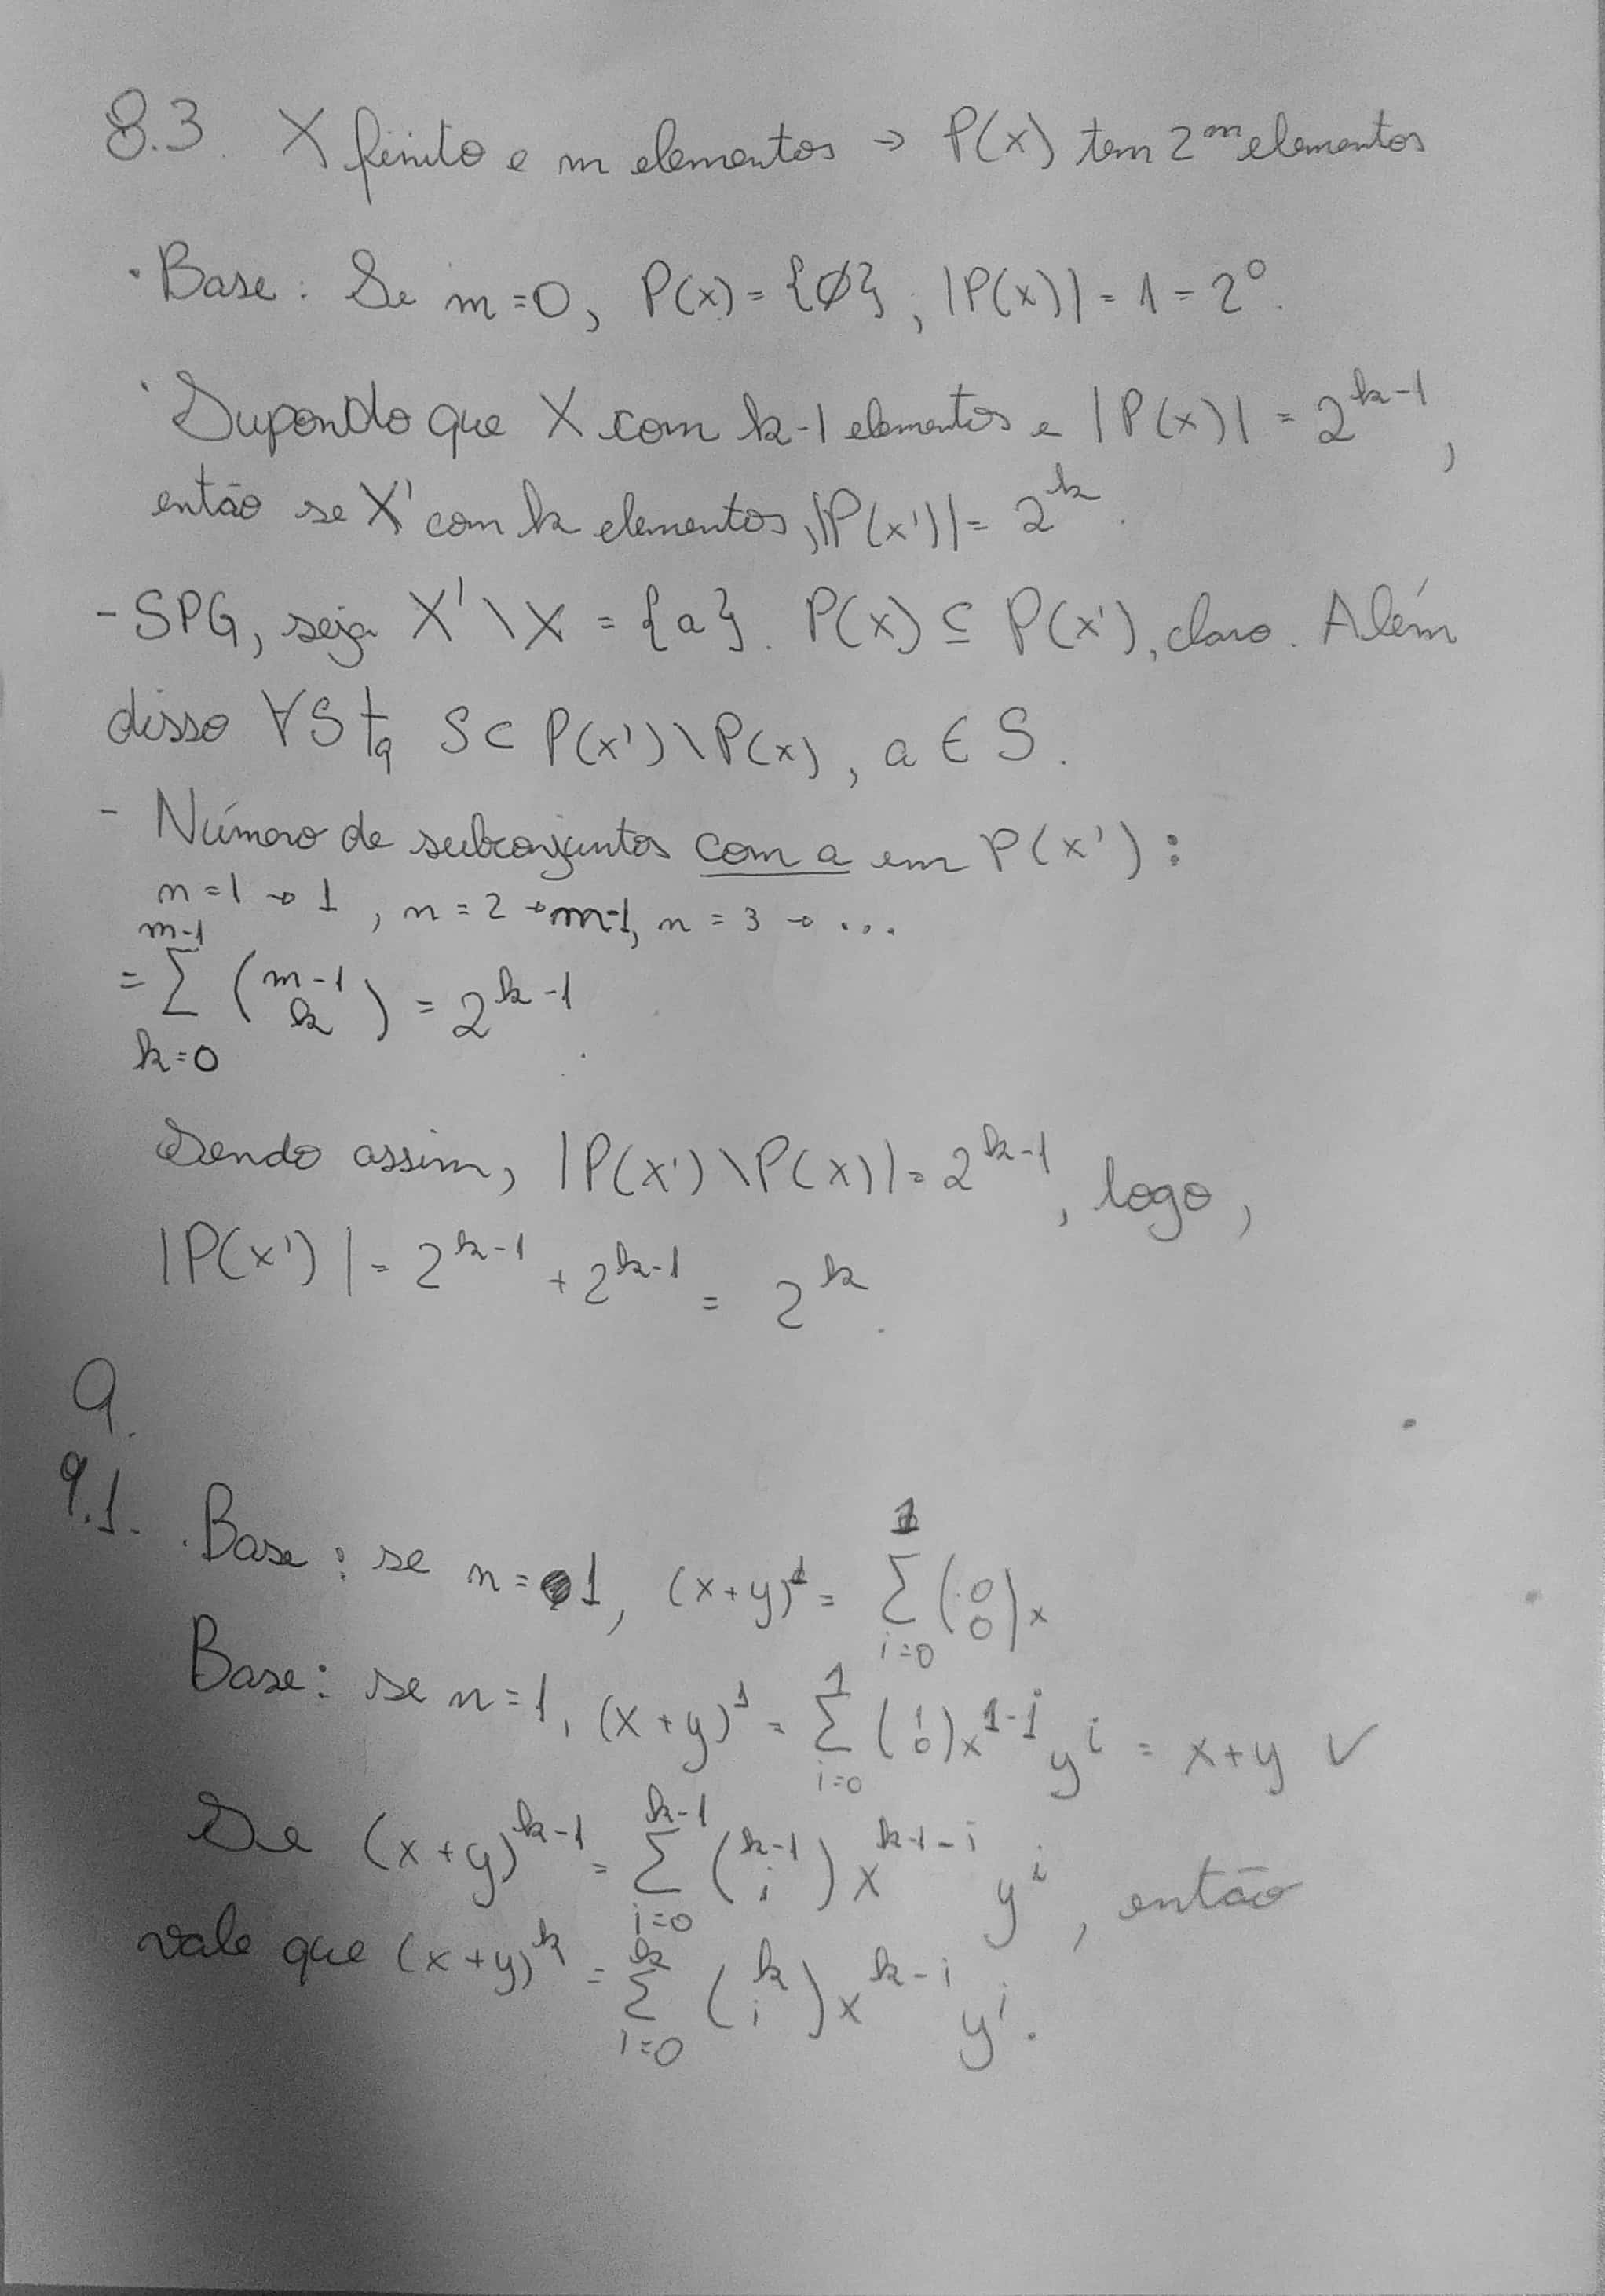 8.3. X finito e m elementos → P(x) tem 2^m elementos
· Base: Se m=0, P(x) = {∅}, |P(x)| = 1 = 2^0.
· Supondo que X com k-1 elementos e |P(x)| = 2^{k-1},
então se X' com k elementos, |P(x')| = 2^k.
- SPG, seja X' \ X = {a}. P(x) ⊆ P(x'), claro. Além
disso ∀S tq S ⊂ P(x') \ P(x), a ∈ S.
- Número de subconjuntos com a em P(x'):
n=1 → 1, n=2 → m-1, n=3 → ...
= ∑_{k=0}^{m-1} (m-1 k) = 2^{k-1}.
Sendo assim, |P(x') \ P(x)| = 2^{k-1}, logo,
|P(x')| = 2^{k-1} + 2^{k-1} = 2^k.
9.
9.1. · Base: se n=1, (x+y)^1 = ∑_{i=0}^{1} (0 0) x
Base: se n=1, (x+y)^1 = ∑_{i=0}^{1} (1 0) x^{1-i} y^i = x+y ✓
Se (x+y)^{k-1} = ∑_{i=0}^{k-1} (k-1 i) x^{k-1-i} y^i, então
vale que (x+y)^k = ∑_{i=0}^{k} (k i) x^{k-i} y^i.